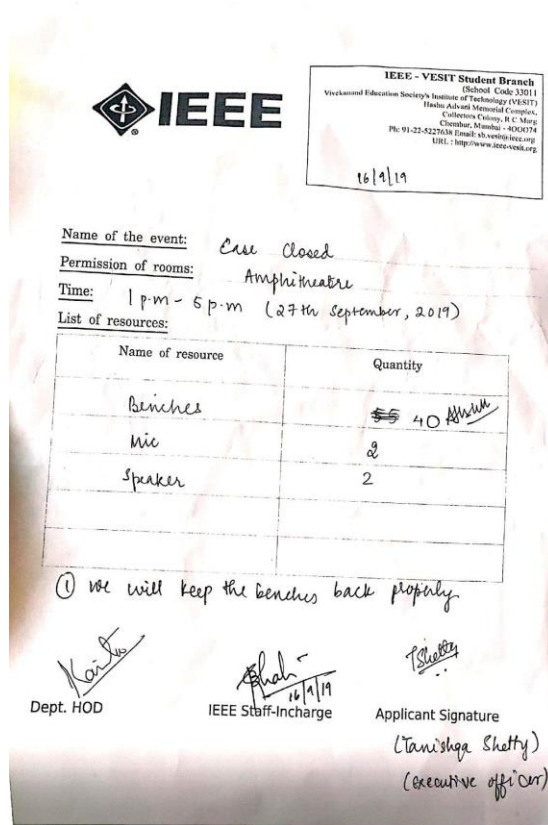 IEEE
IEEE - VESIT Student Branch
(School Code 33011
Vivekanand Education Society's Institute of Technology (VESIT)
Hashu Advani Memorial Complex,
Collectors Colony, R C Marg
Chembur, Mumbai - 400074
Ph: 91-22-5227638 Email: sb.vesit@ieee.org
URL : http://www.ieee-vesit.org
16/9/19
Name of the event: Case Closed
Permission of rooms: Amphitheatre
Time: 1 p.m - 5 p.m (27th September, 2019)
List of resources:
Name of resource Quantity
Benches 40
Mic 2
Speaker 2
① we will keep the benches back properly
16/9/19
Dept. HOD IEEE Staff-Incharge Applicant Signature
TShetty
(Tanishqa Shetty)
(executive officer)